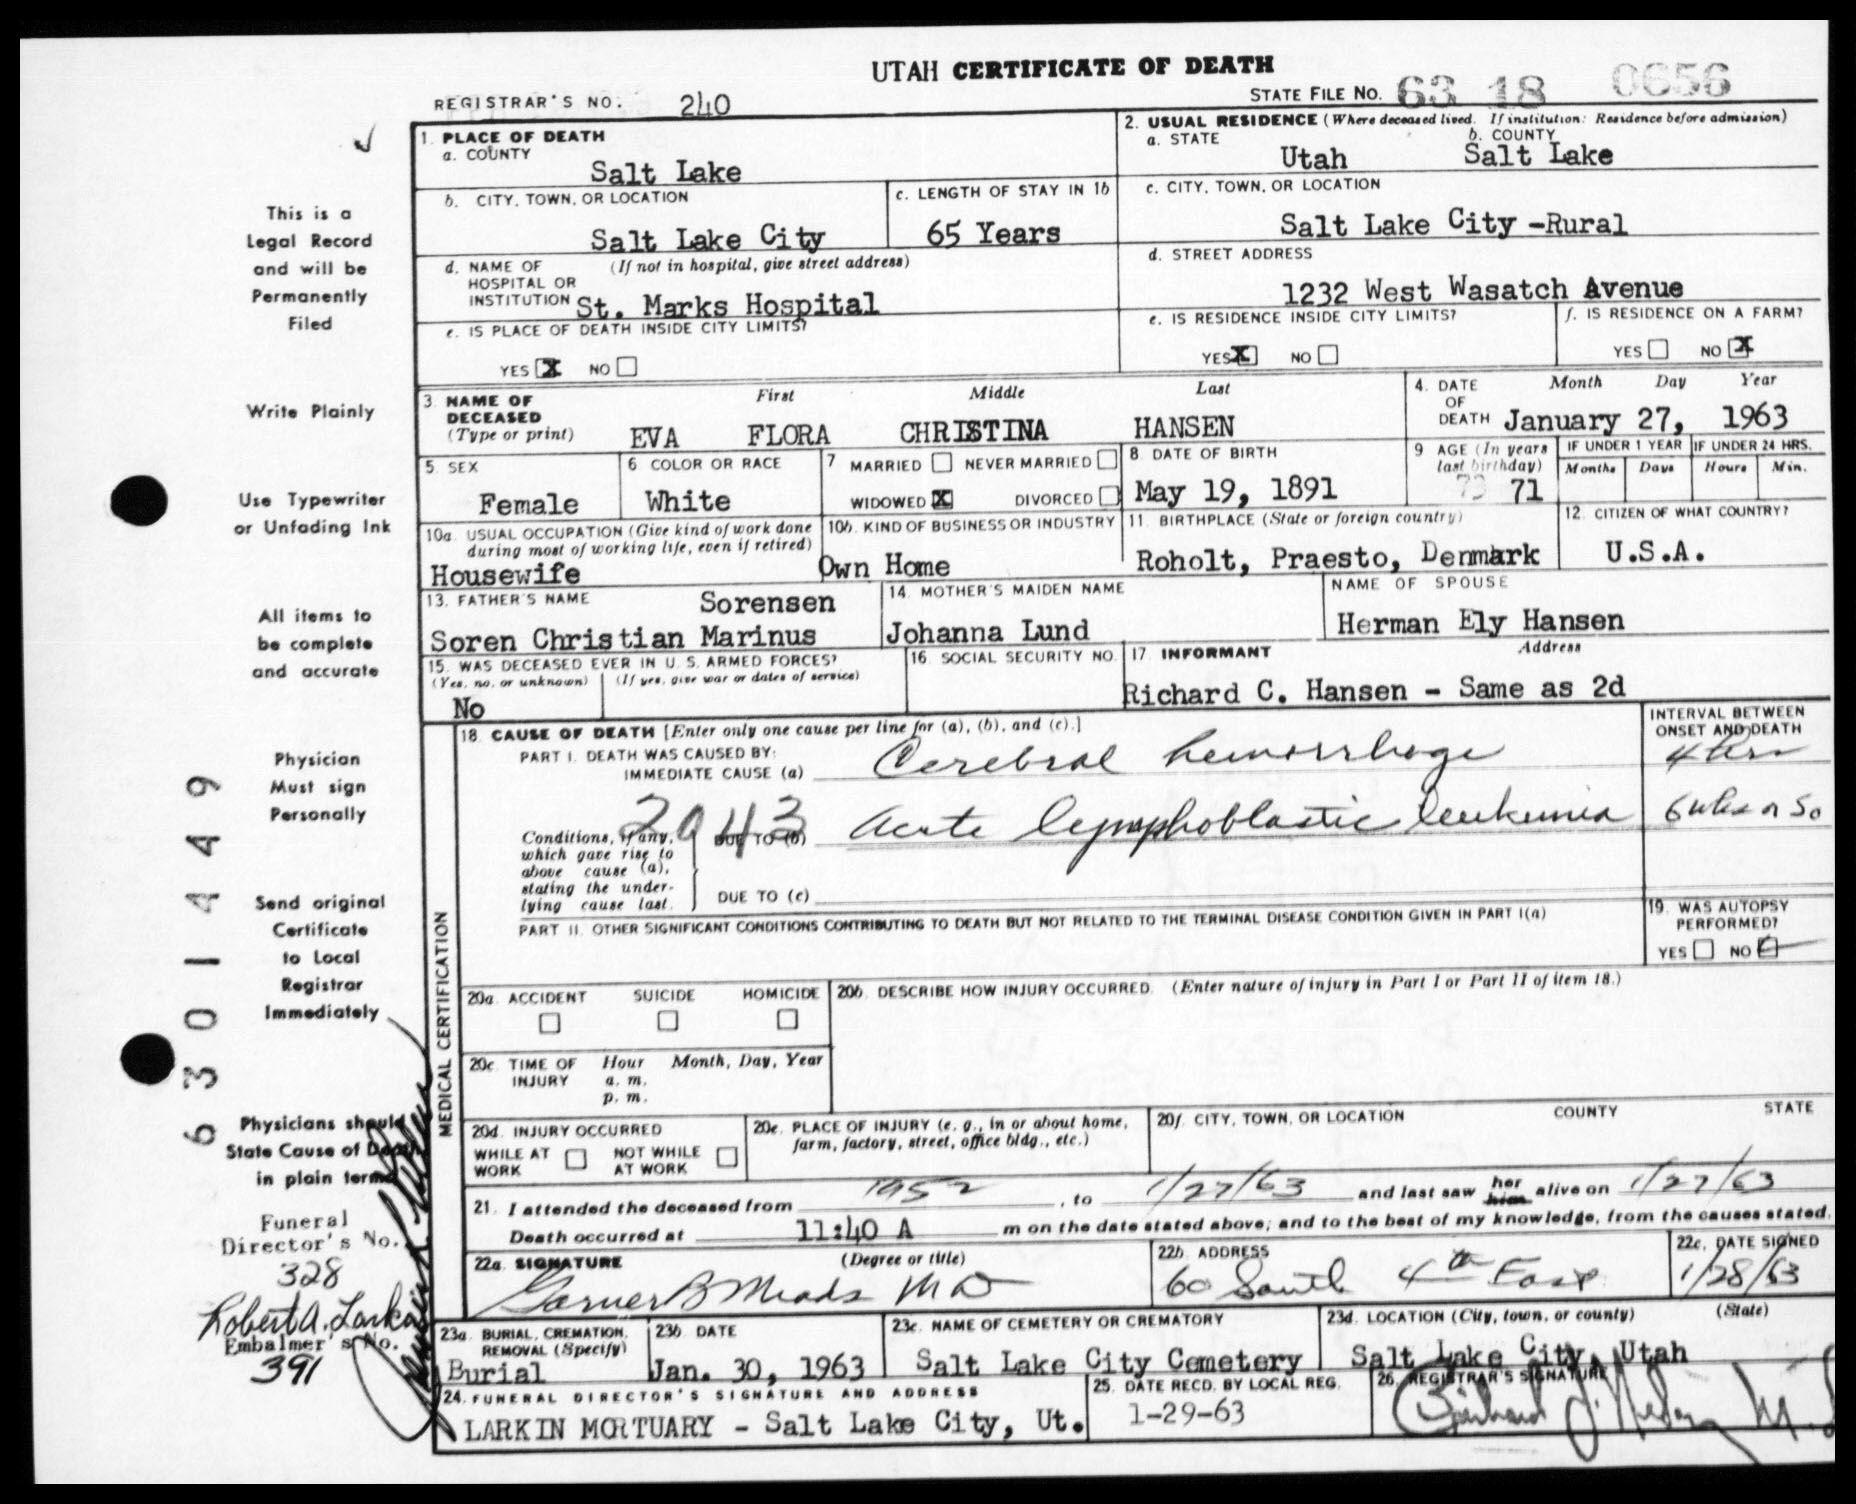 UTAH CERTIFICATE OF DEATH
REGISTRAR'S NO. 240
STATE FILE NO. 63 18 0656
1. PLACE OF DEATH
a. COUNTY
Salt Lake
2. USUAL RESIDENCE (Where deceased lived. If institution: Residence before admission)
a. STATE b. COUNTY
Utah Salt Lake
b. CITY, TOWN, OR LOCATION
Salt Lake City
c. LENGTH OF STAY IN 1b
65 Years
c. CITY, TOWN, OR LOCATION
Salt Lake City -Rural
d. NAME OF (If not in hospital, give street address)
HOSPITAL OR
INSTITUTION St. Marks Hospital
d. STREET ADDRESS
1232 West Wasatch Avenue
e. IS PLACE OF DEATH INSIDE CITY LIMITS?
YES X NO
e. IS RESIDENCE INSIDE CITY LIMITS?
YES X NO
f. IS RESIDENCE ON A FARM?
YES NO X
3. NAME OF First Middle Last
DECEASED
(Type or print) EVA FLORA CHRISTINA HANSEN
4. DATE Month Day Year
OF
DEATH January 27, 1963
5. SEX
Female
6 COLOR OR RACE
White
7 MARRIED NEVER MARRIED
WIDOWED X DIVORCED
8. DATE OF BIRTH
May 19, 1891
9 AGE (In years
last birthday)
71
IF UNDER 1 YEAR IF UNDER 24 HRS.
Months Days Hours Min.
10a. USUAL OCCUPATION (Give kind of work done
during most of working life, even if retired)
Housewife
10b. KIND OF BUSINESS OR INDUSTRY
Own Home
11. BIRTHPLACE (State or foreign country)
Roholt, Praesto, Denmark
12. CITIZEN OF WHAT COUNTRY?
U.S.A.
13. FATHER'S NAME Sorensen
Soren Christian Marinus
14. MOTHER'S MAIDEN NAME
Johanna Lund
NAME OF SPOUSE
Herman Ely Hansen
15. WAS DECEASED EVER IN U. S. ARMED FORCES?
(Yes, no, or unknown) (If yes, give war or dates of service)
No
16. SOCIAL SECURITY NO.
17. INFORMANT Address
Richard C. Hansen - Same as 2d
MEDICAL CERTIFICATION
18. CAUSE OF DEATH [Enter only one cause per line for (a), (b), and (c).]
INTERVAL BETWEEN
ONSET AND DEATH
PART I. DEATH WAS CAUSED BY:
IMMEDIATE CAUSE (a) Cerebral hemorrhage
2043
Conditions, if any,
which gave rise to
above cause (a),
stating the under-
lying cause last.
DUE TO (b) Acute lymphoblastic leukemia 6 wks or so
DUE TO (c)
PART II. OTHER SIGNIFICANT CONDITIONS CONTRIBUTING TO DEATH BUT NOT RELATED TO THE TERMINAL DISEASE CONDITION GIVEN IN PART I(a)
19. WAS AUTOPSY
PERFORMED?
YES NO
20a. ACCIDENT SUICIDE HOMICIDE
20b. DESCRIBE HOW INJURY OCCURRED. (Enter nature of injury in Part I or Part II of item 18.)
20c. TIME OF Hour Month, Day, Year
INJURY a. m.
p. m.
20d. INJURY OCCURRED
WHILE AT NOT WHILE
WORK AT WORK
20e. PLACE OF INJURY (e. g., in or about home,
farm, factory, street, office bldg., etc.)
20f. CITY, TOWN, OR LOCATION COUNTY STATE
21. I attended the deceased from 1952, to 1/27/63 and last saw her him alive on 1/27/63
Death occurred at 11:40 A m on the date stated above; and to the best of my knowledge, from the causes stated.
22a. SIGNATURE (Degree or title)
Garner B Meads M D
22b. ADDRESS
60 South 4th East
22c. DATE SIGNED
1/28/63
23a. BURIAL, CREMATION,
REMOVAL (Specify)
Burial
23b. DATE
Jan. 30, 1963
23c. NAME OF CEMETERY OR CREMATORY
Salt Lake City Cemetery
23d. LOCATION (City, town, or county) (State)
Salt Lake City, Utah
24. FUNERAL DIRECTOR'S SIGNATURE AND ADDRESS
LARKIN MORTUARY - Salt Lake City, Ut.
25. DATE RECD. BY LOCAL REG.
1-29-63
26. REGISTRAR'S SIGNATURE
This is a
Legal Record
and will be
Permanently
Filed
Write Plainly
Use Typewriter
or Unfading Ink
All items to
be complete
and accurate
Physician
Must sign
Personally
Send original
Certificate
to Local
Registrar
Immediately
Physicians should
State Cause of Death
in plain terms
6301449
Funeral
Director's No.
328
Robert A. Larkin
Embalmer's No.
391